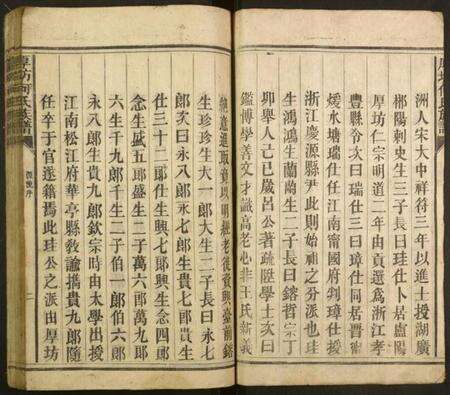 洲人宋大中祥符三年以進士授湖廣
郴陽刺史生三子長曰珪仕卜居盧陽
厚坊仁宗明道二年由貢選為浙江孝
豐縣令次曰瑞仕三曰璋仕同居晋甯
煖水塘瑞仕任江南甯國府判璋仕授
浙江慶源縣尹此則始祖之分派也珪
生鴻鴻生蘭蘭生二子長曰鎔哲宗丁
卯舉人己巳歲呂公著疏陞學士次曰
鑑博學善文才識高老心非王氏新義
生珍珍生大一郎大生二子長曰永七
郎次曰永八郎永七郎生貴七郎貴生
仕三十二郎仕生興七郎興生念四郎
念生盛五郎盛生二子萬六郎萬九郎
六生千九郎千生二子伯一郎伯六郎
永八郎生貴九郎欽宗時由太學出授
江南松江府華亭縣教諭攜貴九郎隨
任卒于官遂籍焉此珪公之派由厚坊
厚坊何氏族譜